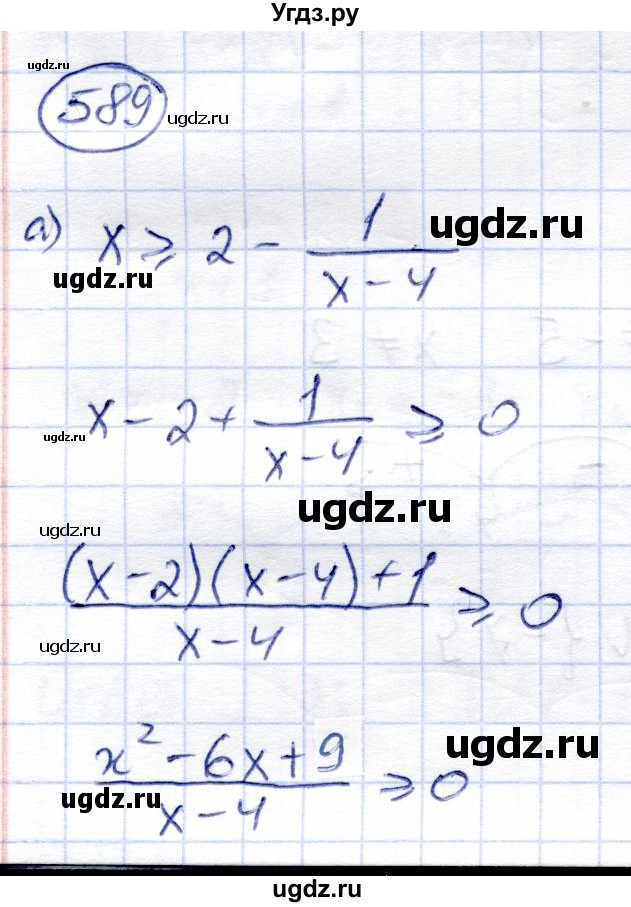 Угдз.ру
ugdz.ru
589 ugdz.ru
а) x ⩾ 2 - 1/(x - 4) ugdz.ru
ugdz.ru
x - 2 + 1/(x - 4) ⩾ 0
ugdz.ru
ugdz.ru
ugdz.ru
((x - 2)(x - 4) + 1)/(x - 4) ⩾ 0
ugdz.ru
(x² - 6x + 9)/(x - 4) ⩾ 0 ugdz.ru
ugdz.ru
ugdz.ru